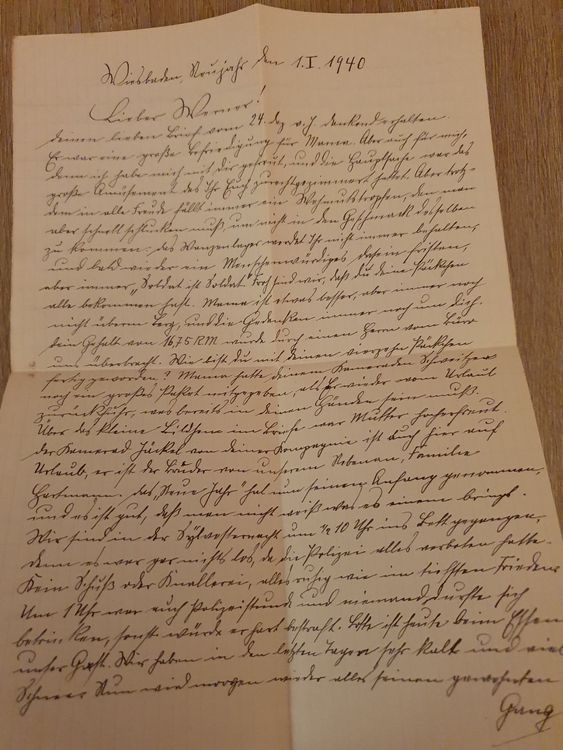 Wiesbaden, Neujahr den 1.I.1940
Lieber Werner!
deinen lieben Brief vom 24. dez v. J. dankend erhalten.
Er war eine große Befriedigung für Mama. Aber auch für mich,
denn ich habe mich mit dir gefreut, und die Hauptsache war das
große Amüsement das Ihr Euch zurechtgezimmert hattet. Aber trotz-
dem in alle Freude fällt immer ein Wehmutstropfen, den man
aber schnell schlucken muß, um nicht in den Geschmack desselben
zu kommen: das Wanzenlager werdet Ihr nicht immer behalten,
und bald wieder ein Menschenwürdiges Dasein fristen,
aber immer „Soldat ist Soldat". Froh sind wir, daß du deine Päckchen
alle bekommen hast. Mama ist etwas besser, aber immer noch
nicht überm Berg, und die Gedanken immer noch um dich.
dein Gehalt von 16,75 RM wurde durch einen Herrn vom Büro
uns überbracht. Wie bist du mit deinen vierzehn Päckchen
fertig geworden? Mama hatte deinem Kameraden Schweitzer
noch ein großes Paket mitgegeben, als Er wieder vom Urlaub
zurückfuhr, was bereits in deinen Händen sein muß.
Über das kleine Bildchen im Briefe war Mutter hocherfreut.
der Kamerad Jäckel von deiner Kompagnie ist auch hier auf
Urlaub, er ist der Bruder von unserem Nebenan, Familie
Hartmann. das „Neue Jahr" hat nun seinen Anfang genommen,
und es ist gut, daß man nicht weiß was es einem bringt.
Wir sind in der Sylvesternacht um ½10 Uhr ins Bett gegangen,
denn es war gar nichts los, da die Polizei alles verboten hatte.
Kein Schuß oder Knallerei, alles ruhig wie im tiefsten Frieden.
Um 1 Uhr war auch Polizeistunde und niemand durfte sich
betrinken, sonst würde er hart bestraft. Lotte ist heute beim Essen
unser Gast. Wir haben in den letzten Tagen sehr kalt und viel
Schnee. Nun wird morgen wieder alles seinen gewohnten
Gang